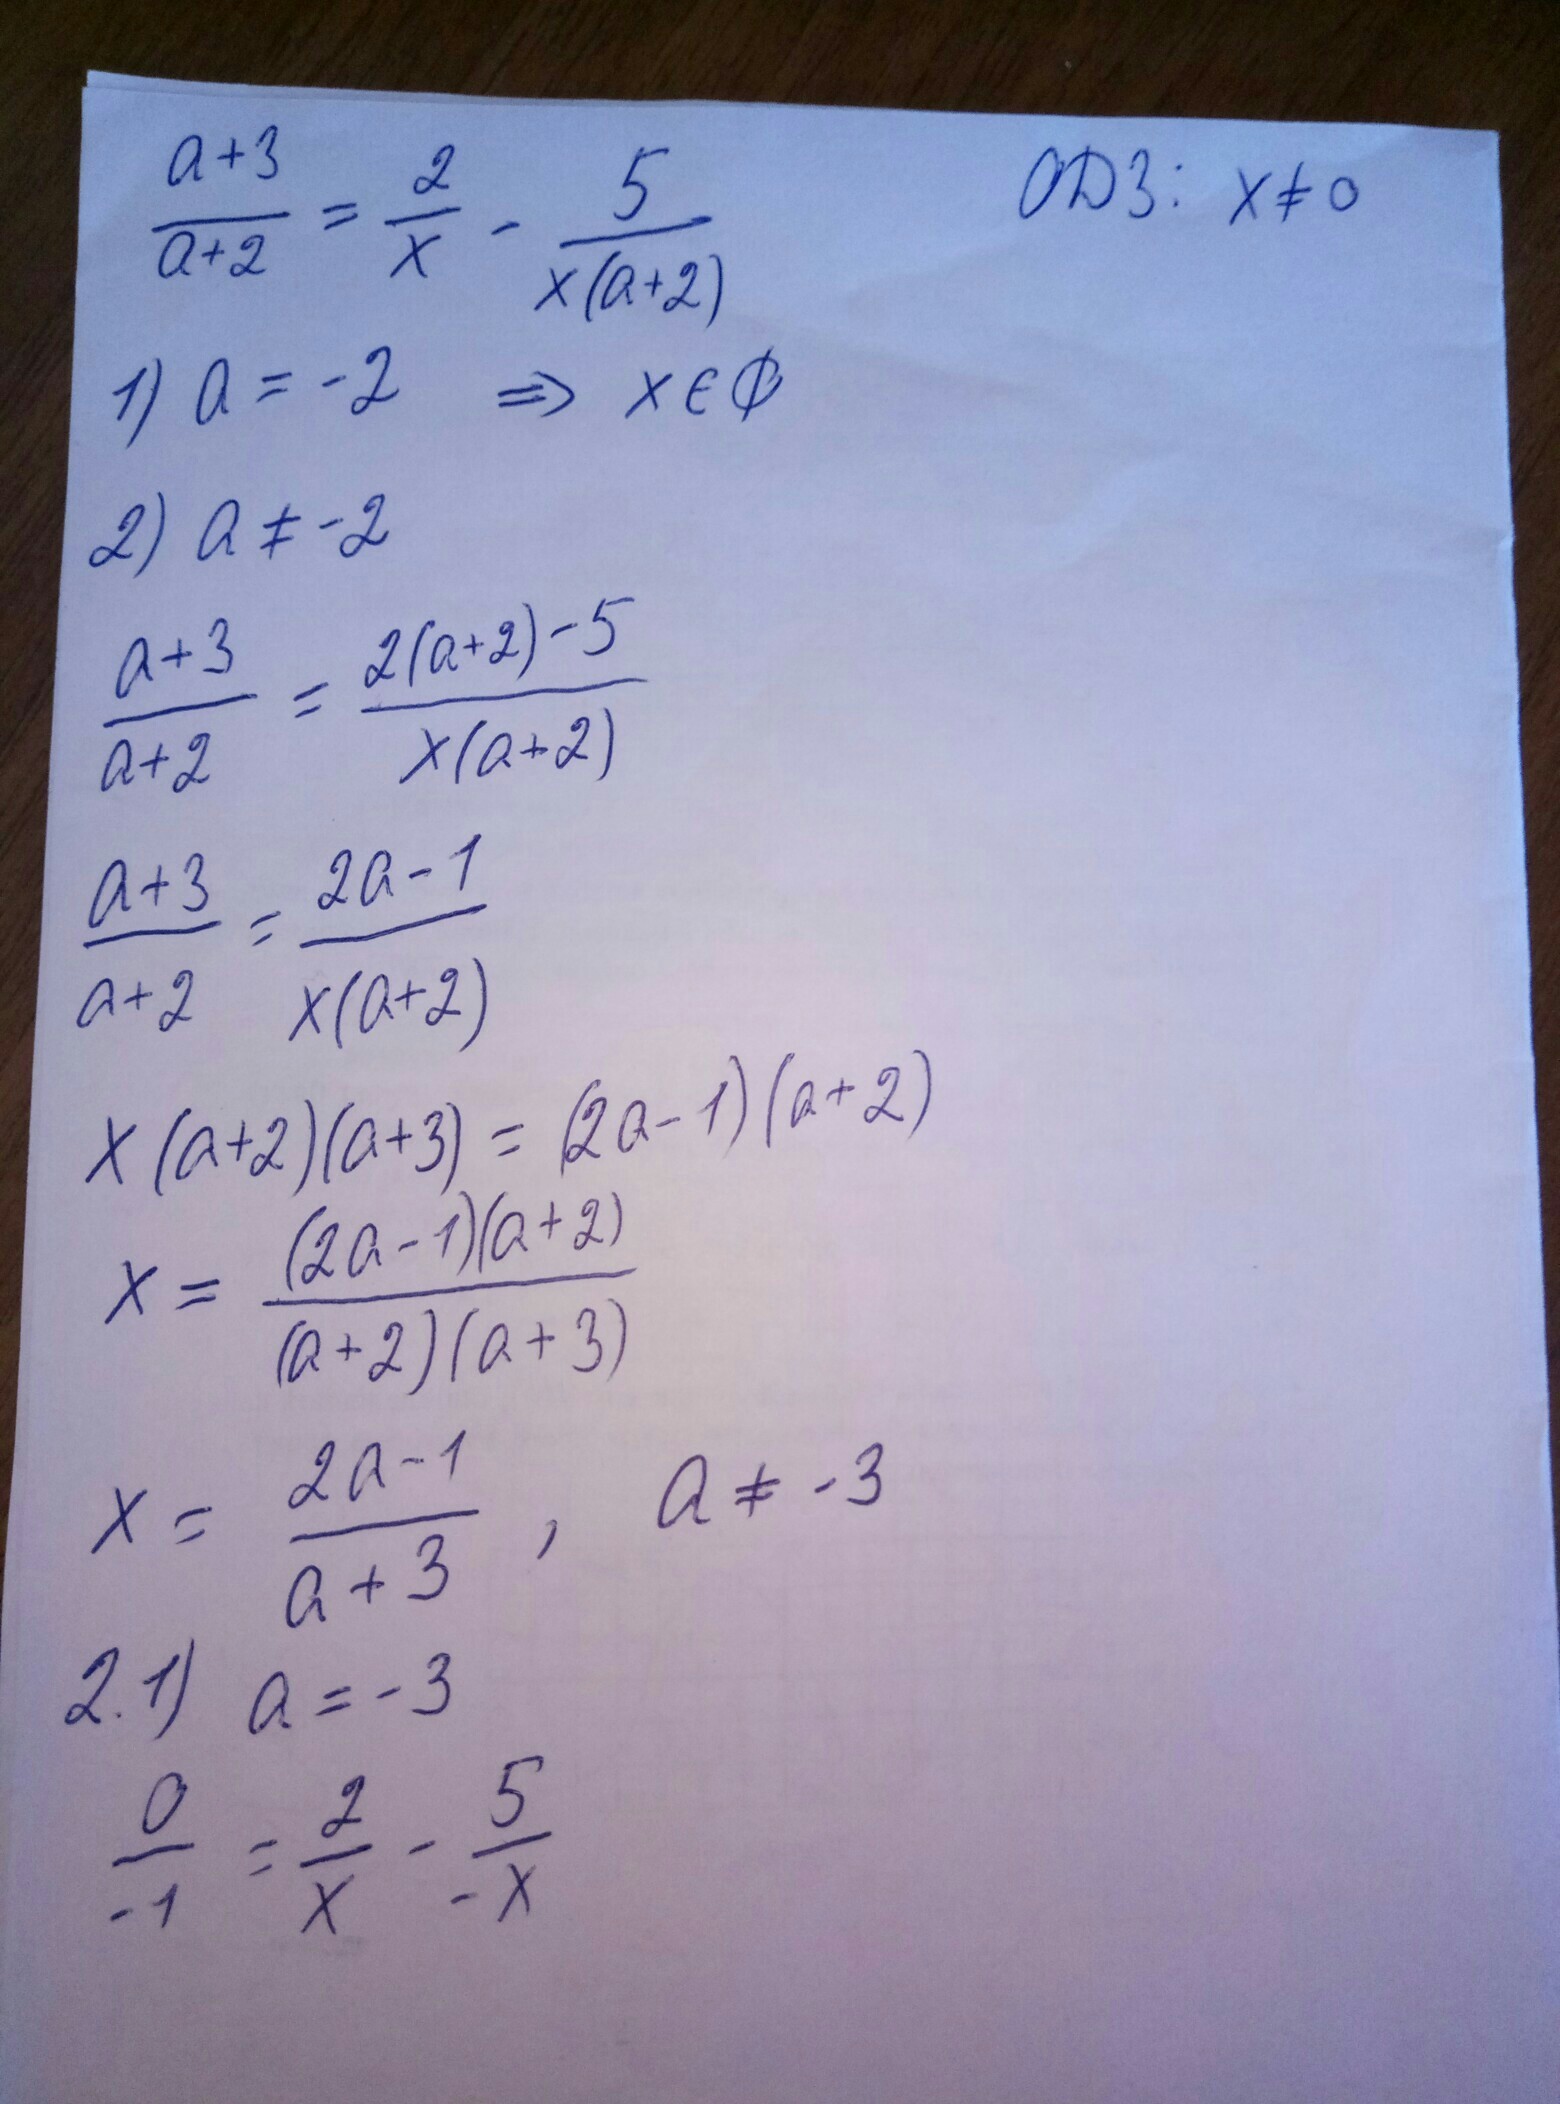 (a+3)/(a+2) = 2/x - 5/(x(a+2))    ОДЗ: x≠0
1) a = -2 ⇒ x ∈ ∅
2) a ≠ -2
(a+3)/(a+2) = (2(a+2)-5)/(x(a+2))
(a+3)/(a+2) = (2a-1)/(x(a+2))
x(a+2)(a+3) = (2a-1)(a+2)
x = ((2a-1)(a+2))/((a+2)(a+3))
x = (2a-1)/(a+3), a ≠ -3
2.1) a = -3
0/-1 = 2/x - 5/-x